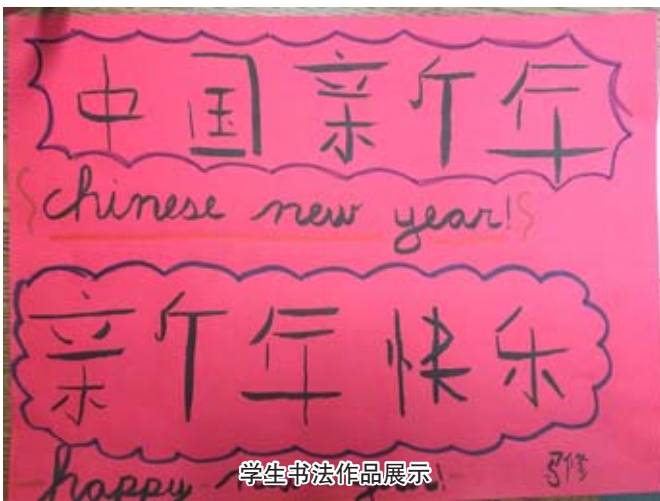 中国新年
chinese new year!
新年快乐
happy new year!
学生书法作品展示